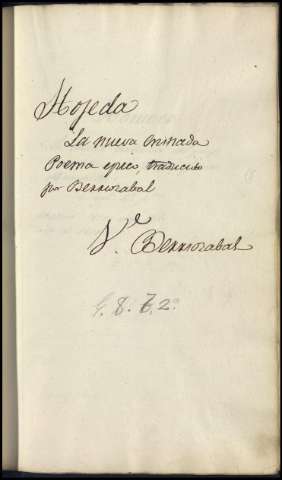 Hojeda
La nueva Cristiada
Poema epico, traducido
por Berriozabal
Ve. Berriozabal
4. 8. 7. 2º